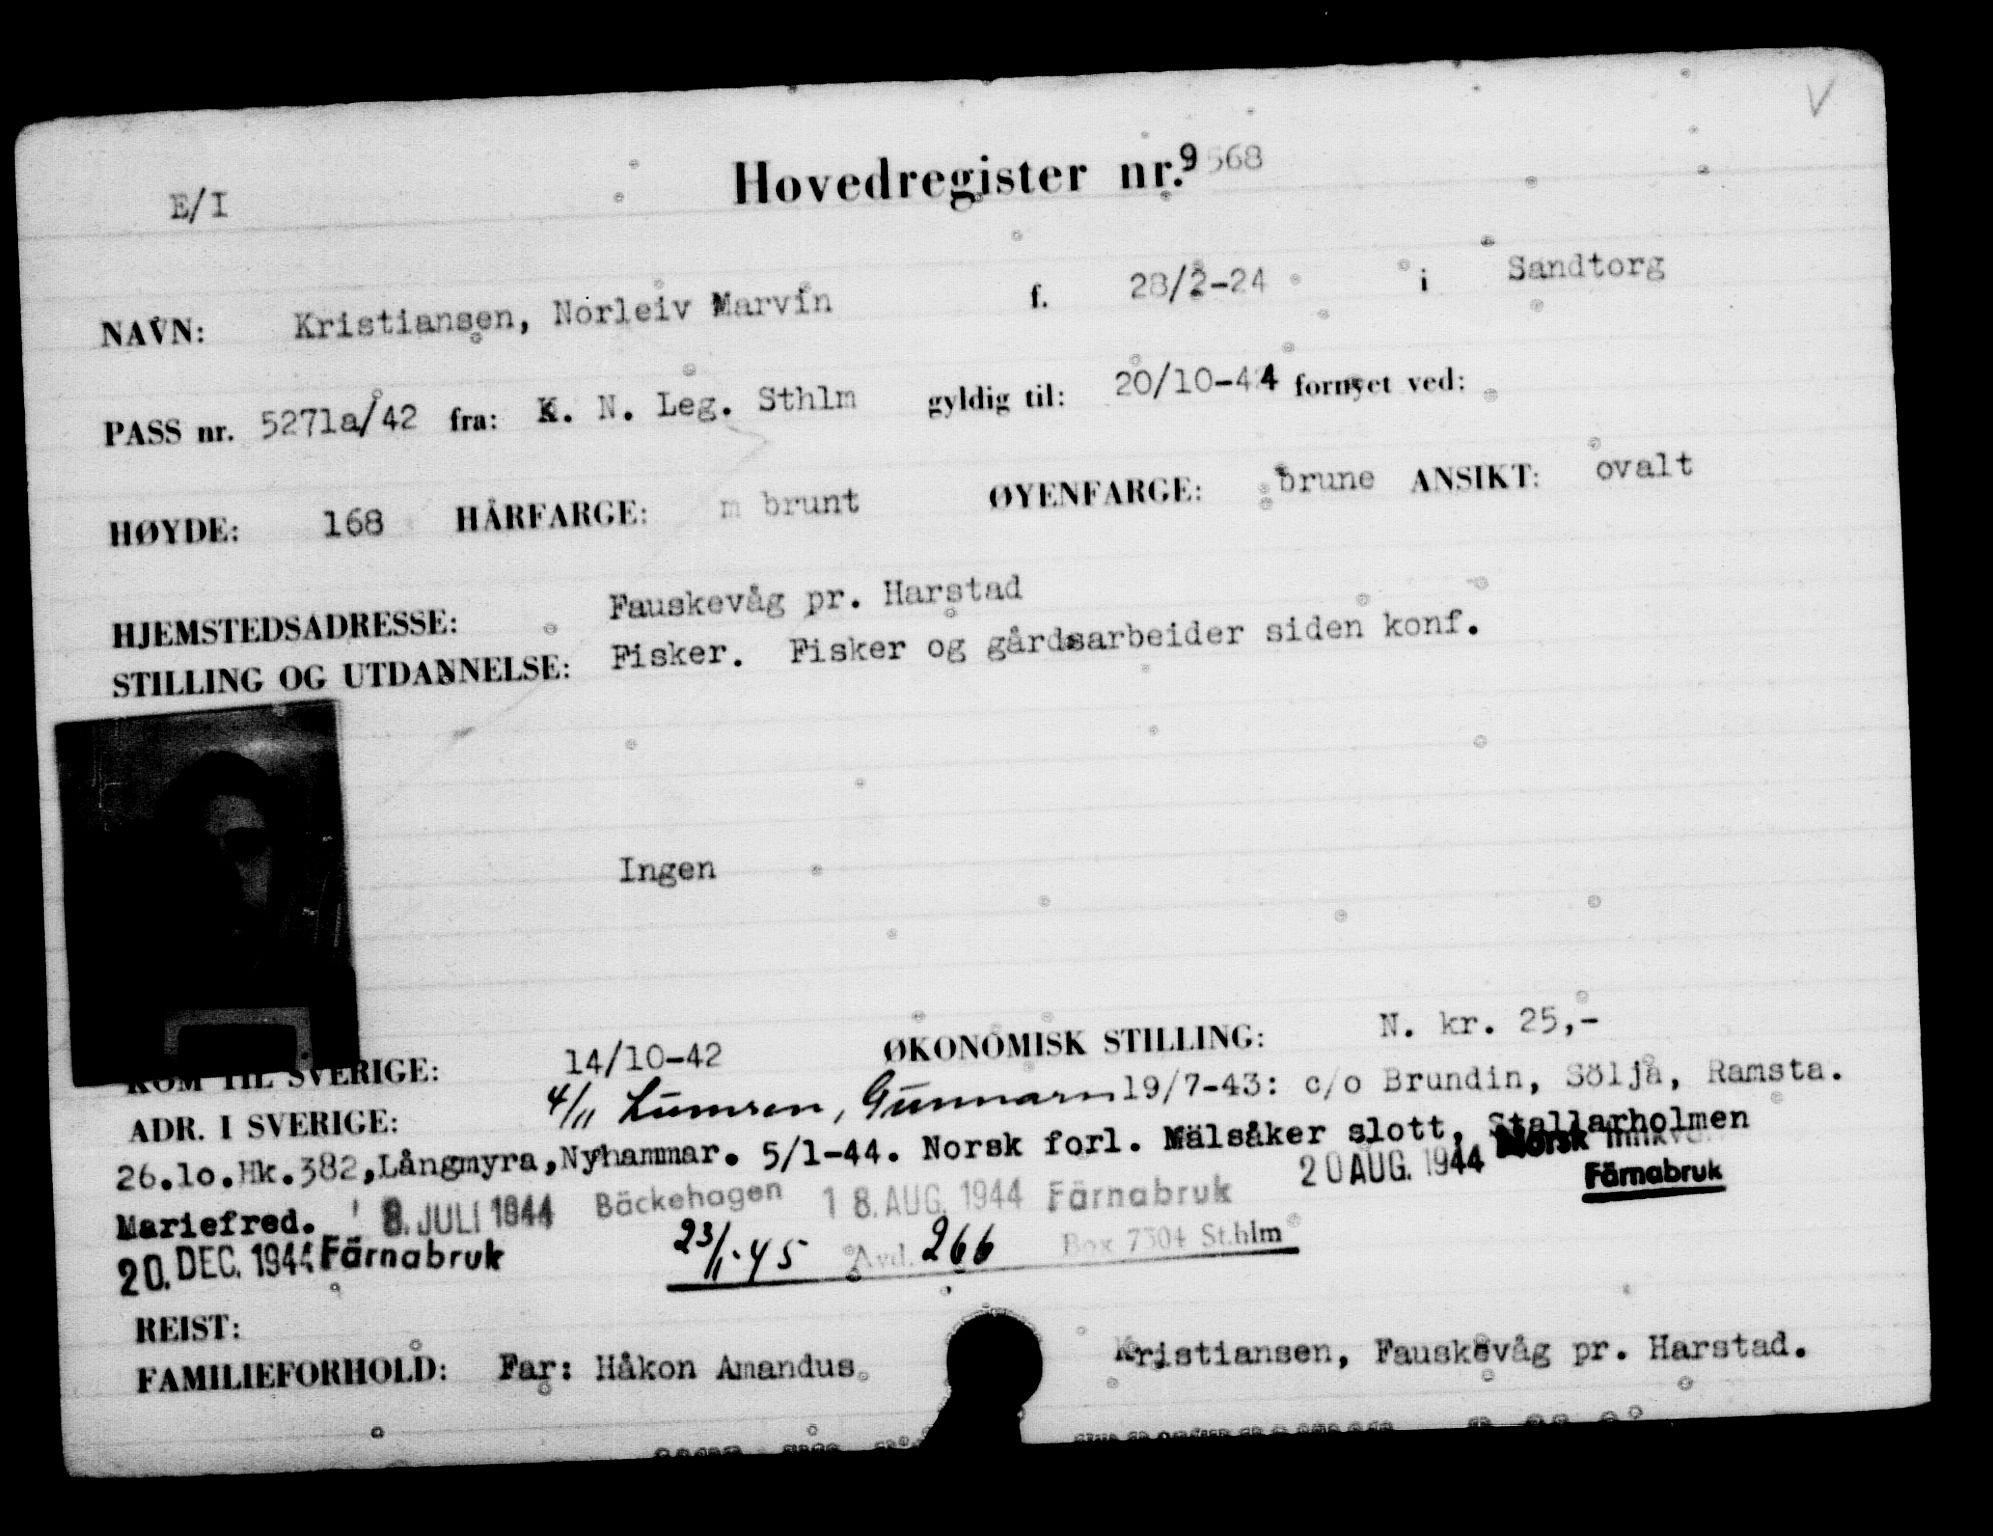 V
E/I Hovedregister nr. 9568
NAVN: Kristiansen, Norleiv Marvin f. 28/2-24 i Sandtorg
PASS nr. 5271a/42 fra: K. N. Leg. Sthlm gyldig til: 20/10-44 fornyet ved:
HØYDE: 168 HÅRFARGE: m brunt ØYENFARGE: brune ANSIKT: ovalt
HJEMSTEDSADRESSE: Fauskevåg pr. Harstad
STILLING OG UTDANNELSE: Fisker. Fisker og gårdsarbeider siden konf.
Ingen
KOM TIL SVERIGE: 14/10-42 ØKONOMISK STILLING: N. kr. 25,-
ADR. I SVERIGE: 4/11 Lumsen, Gunnarn 19/7-43: c/o Brundin, Söljå, Ramsta.
26.10.Hk.382,Långmyra,Nyhammar. 5/1-44. Norsk forl. Mälsåker slott, Stallarholmen
Mariefred. 8. JULI 1944 Bäckehagen 18. AUG. 1944 Färnabruk 20 AUG. 1944 Norsk Färnabruk
20. DEC. 1944 Färnabruk 23/1-45 Avd. 266 Box 7304 St.hlm
REIST:
FAMILIEFORHOLD: Far: Håkon Amandus Kristiansen, Fauskevåg pr. Harstad.